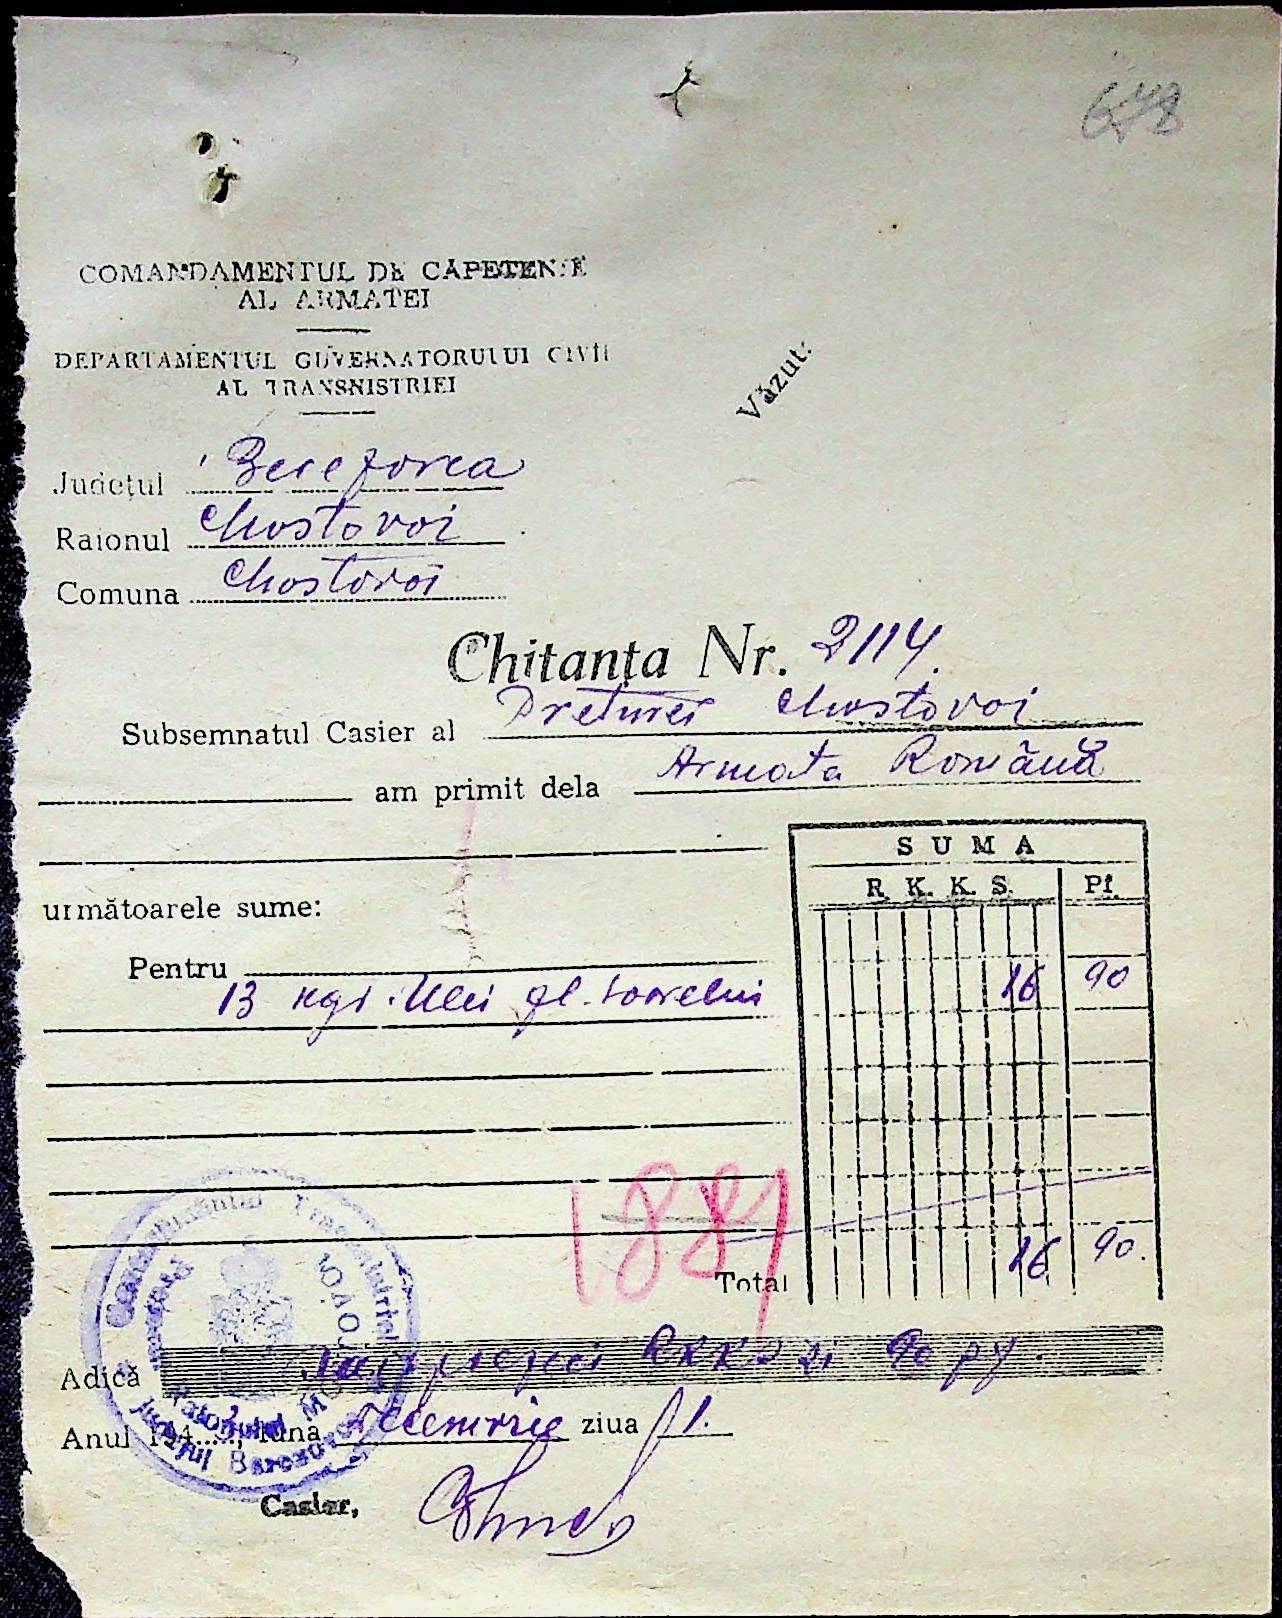 648
COMANDAMENTUL DE CAPETENIE
AL ARMATEI
DEPARTAMENTUL GUVERNATORULUI CIVIL
AL TRANSNISTRIEI
Văzut:
Județul Berezovca
Raionul Mostovoi
Comuna Mostovoi
Chitanța Nr. 2114.
Subsemnatul Casier al Preturei Mostovoi
am primit dela Armata Română
SUMA
R. K. K. S. Pf.
următoarele sume:
Pentru
13 kgr. Ulei fl. soarelui 16 90
1881
Total 16 90.
Adică R K K S si 90 pf.
Anul 194 , luna Decembrie ziua 1.
Casier,
Raionului
Județul Berezovca